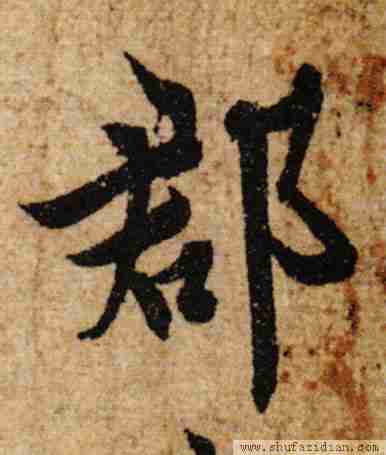 郡
www.shufazidian.com